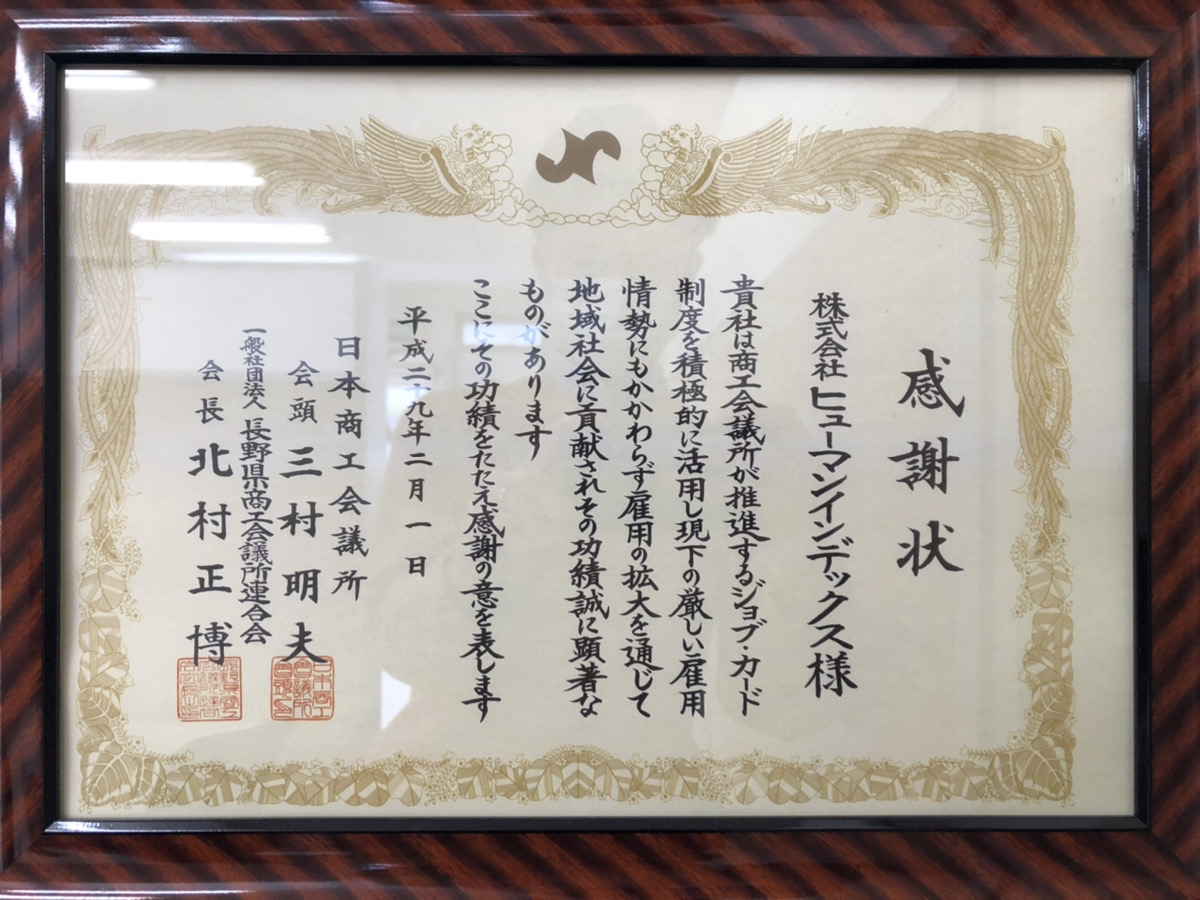 感謝状
株式会社ヒューマンインデックス様
貴社は商工会議所が推進するジョブ・カード
制度を積極的に活用し現下の厳しい雇用
情勢にもかかわらず雇用の拡大を通じて
地域社会に貢献されその功績誠に顕著な
ものがあります
ここにその功績をたたえ感謝の意を表します
平成二十九年二月一日
日本商工会議所
会頭 三村明夫
一般社団法人 長野県商工会議所連合会
会長 北村正博